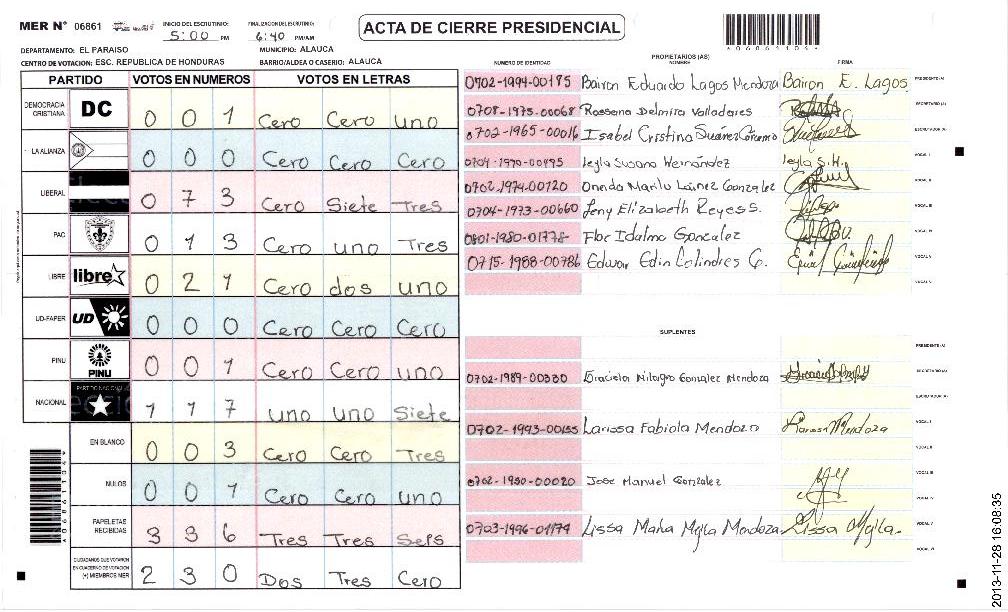 MER N° 06861
INICIO DEL ESCRUTINIO:
5:00 PM
FINALIZACION DEL ESCRUTINIO:
6:40 PM/AM
ACTA DE CIERRE PRESIDENCIAL
DEPARTAMENTO: EL PARAISO
MUNICIPIO: ALAUCA
CENTRO DE VOTACION: ESC. REPUBLICA DE HONDURAS
BARRIO/ALDEA O CASERIO: ALAUCA
PARTIDO VOTOS EN NUMEROS VOTOS EN LETRAS
DEMOCRACIA CRISTIANA DC 0 0 1 Cero Cero uno
LA ALIANZA 0 0 0 Cero Cero Cero
LIBERAL 0 7 3 Cero Siete Tres
PAC 0 1 3 Cero uno Tres
LIBRE libre 0 2 1 Cero dos uno
UD-FAPER UD 0 0 0 Cero Cero Cero
PINU PINU 0 0 1 Cero Cero uno
NACIONAL 1 1 7 uno uno Siete
EN BLANCO 0 0 3 Cero Cero Tres
NULOS 0 0 1 Cero Cero uno
PAPELETAS RECIBIDAS 3 3 6 Tres Tres Seis
CIUDADANOS QUE VOTARON EN CUADERNO DE VOTACION (+) MIEMBROS MER 2 3 0 Dos Tres Cero
PROPIETARIOS (AS)
NUMERO DE IDENTIDAD NOMBRE FIRMA
0702-1994-00185 Bairon Eduardo Lagos Mendoza Bairon E. Lagos PRESIDENTE (A)
0708-1975-00068 Rossana Delmira Valladares SECRETARIO (A)
0702-1965-00016 Isabel Cristina Suárez ESCRUTADOR (A)
0704-1970-00495 leyla Susana Hernández leyla S.H. VOCAL I
0702-1974-00720 Marilu Lainez Gonzalez VOCAL II
0704-1973-00660 Elizabeth Reyes S. VOCAL III
0801-1980-01778- Flor Idalma Gonzalez VOCAL IV
0715-1988-00786 Edwar Edin Colindres G. VOCAL V
VOCAL VI
SUPLENTES
PRESIDENTE (A)
0702-1989-00330 Graciela Milagro Gonzalez Mendoza SECRETARIO (A)
ESCRUTADOR (A)
0702-1993-00155 Larissa Fabiola Mendoza Larissa Mendoza VOCAL I
VOCAL II
0702-1950-00020 Jose Manuel Gonzalez VOCAL III
VOCAL IV
0703-1996-01174 Lissa Maria Mejia Mendoza Lissa Mejia. VOCAL V
VOCAL VI
2013-11-28 16:08:35